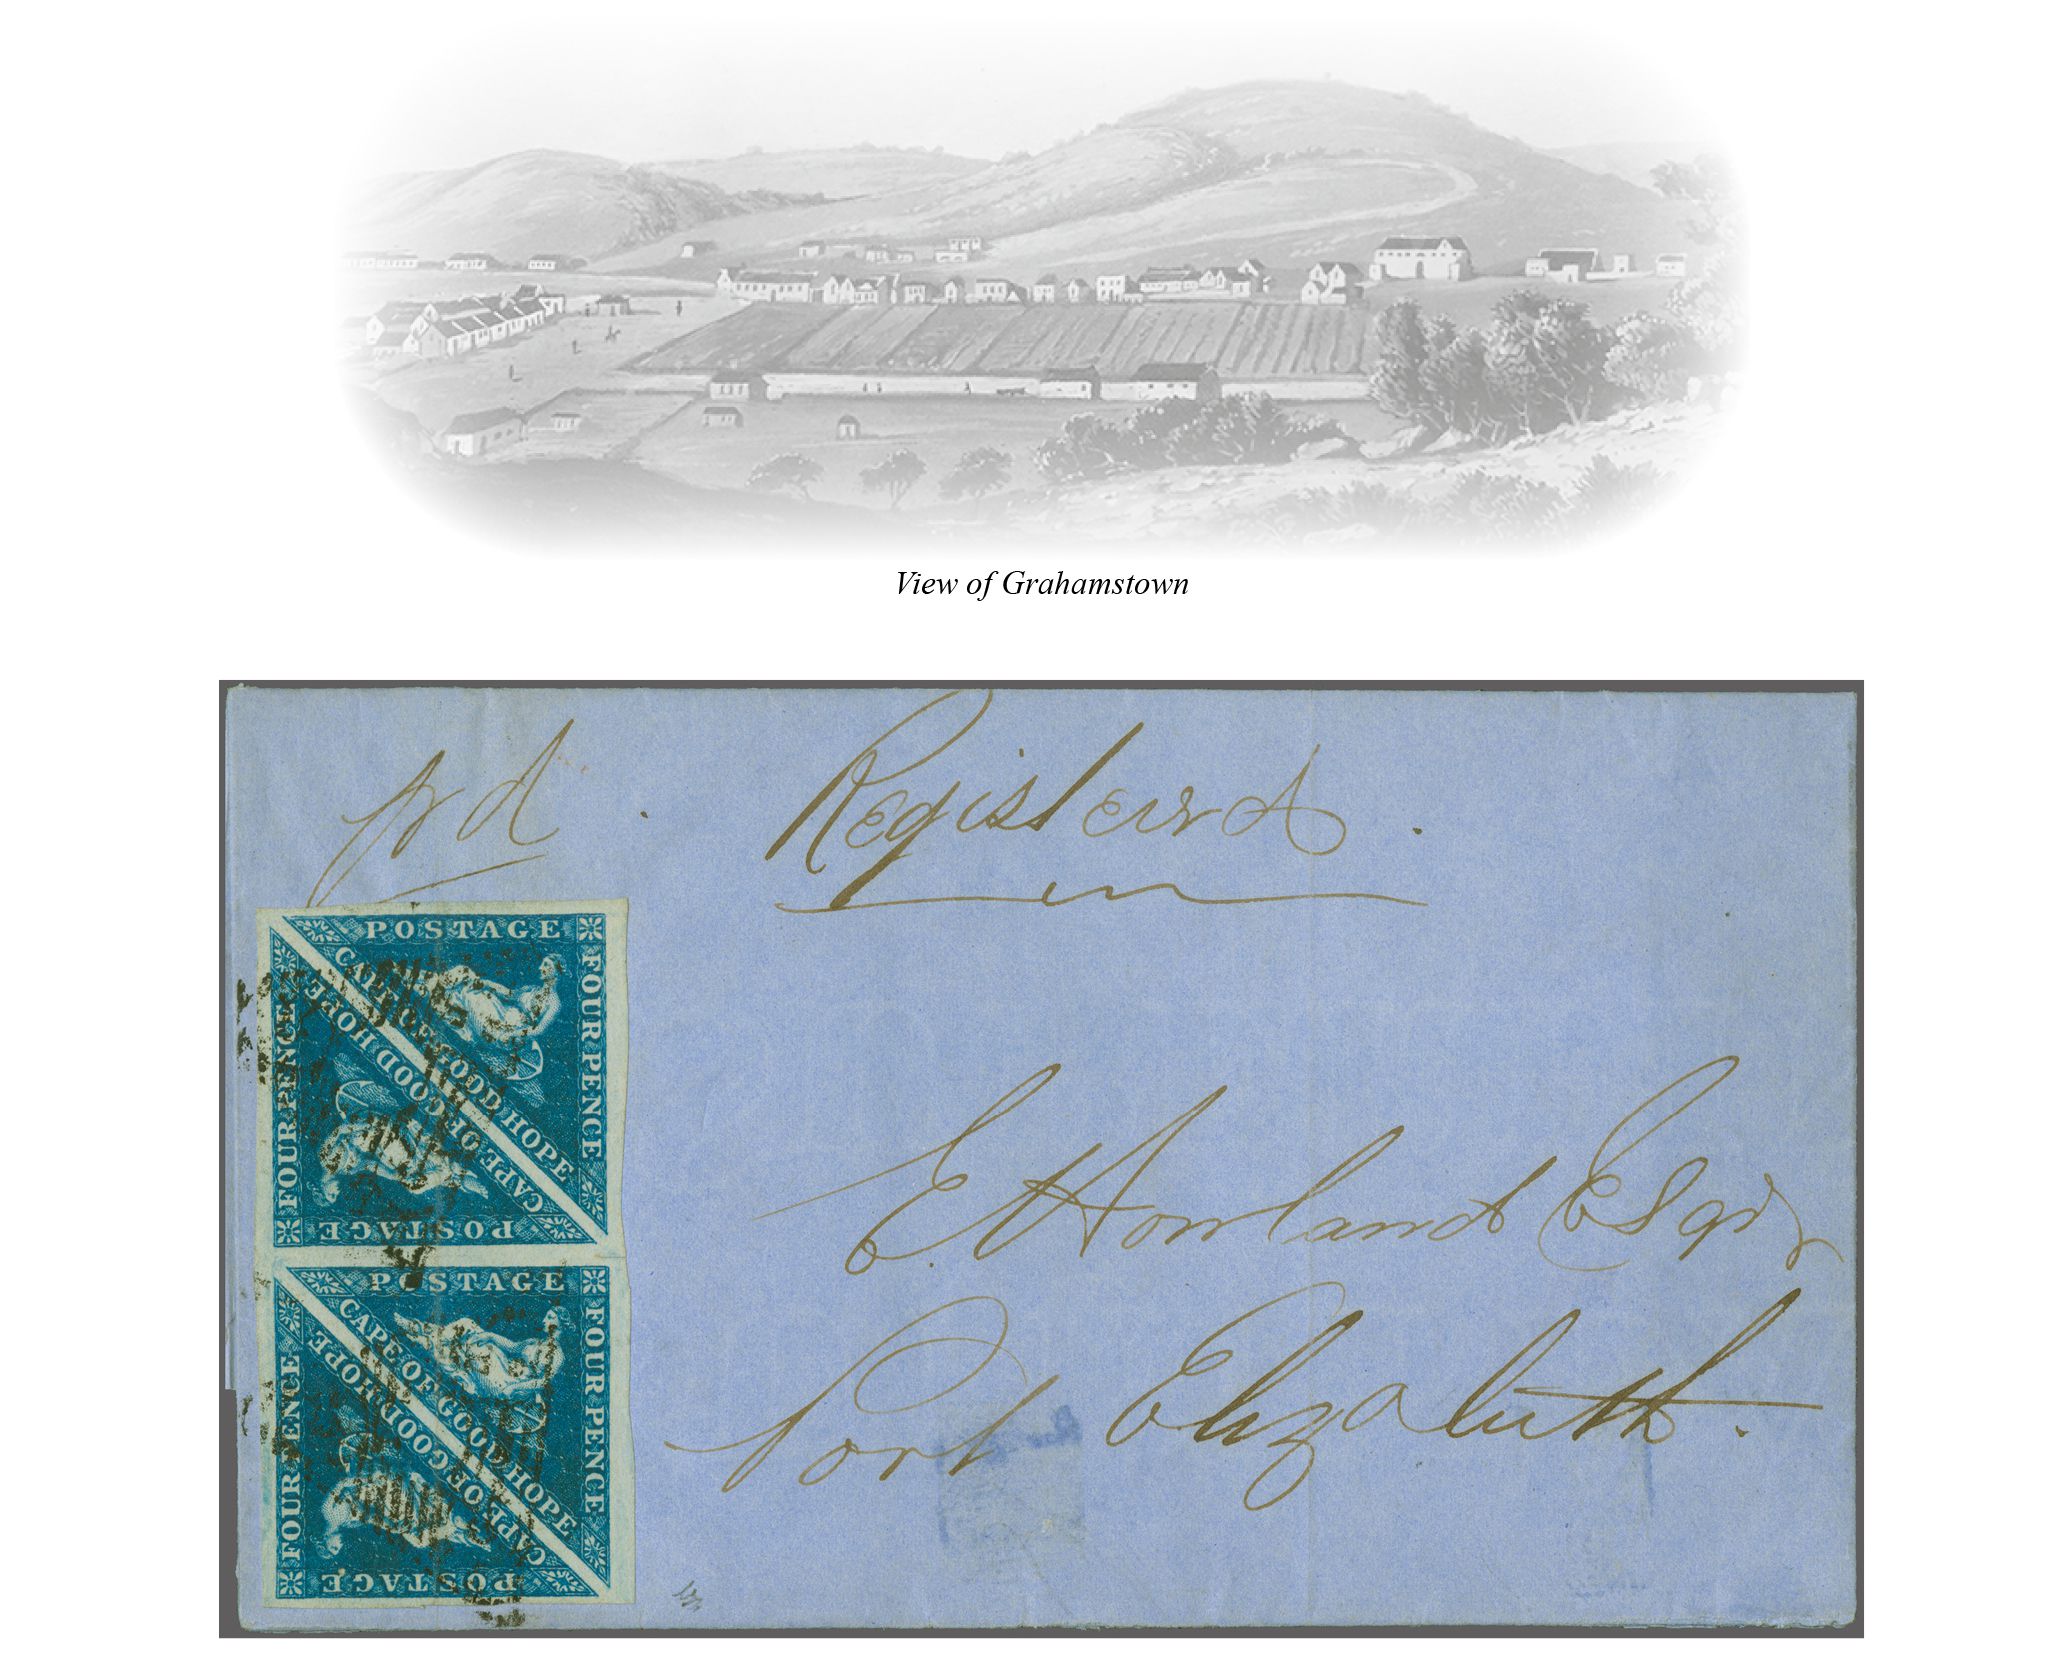 View of Grahamstown
pd . Registerd .
POSTAGE
FOUR PENCE
CAPE OF GOOD HOPE
CAPE OF GOOD HOPE
FOUR PENCE
POSTAGE
POSTAGE
FOUR PENCE
CAPE OF GOOD HOPE
CAPE OF GOOD HOPE
FOUR PENCE
POSTAGE
E. Howland Esqr
Port Elizabeth.